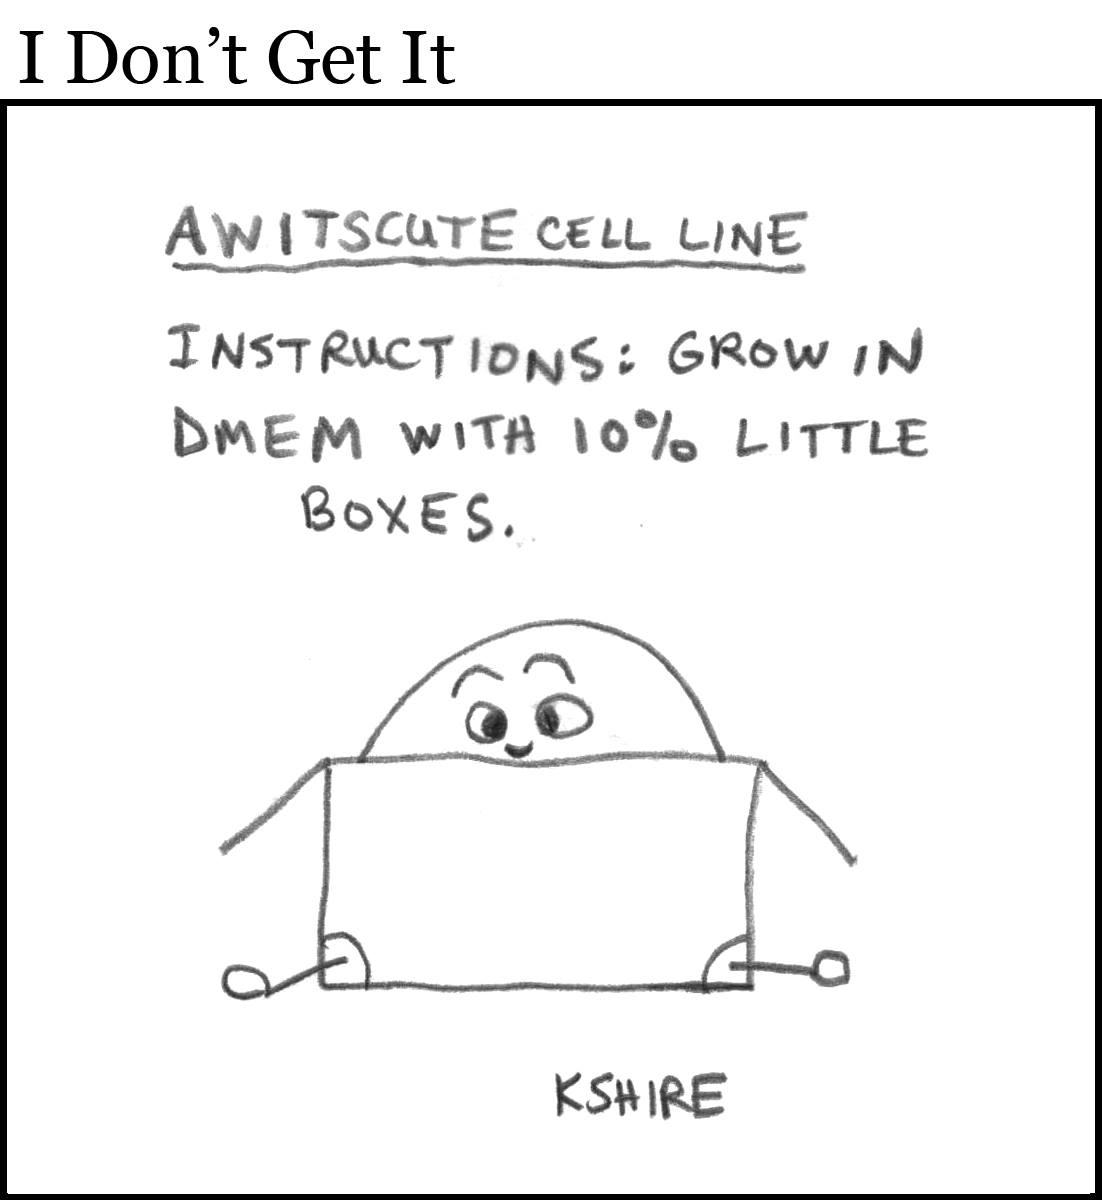 I Don’t Get It
AWITSCUTE CELL LINE
INSTRUCTIONS: GROW IN
DMEM WITH 10% LITTLE
BOXES.
KSHIRE